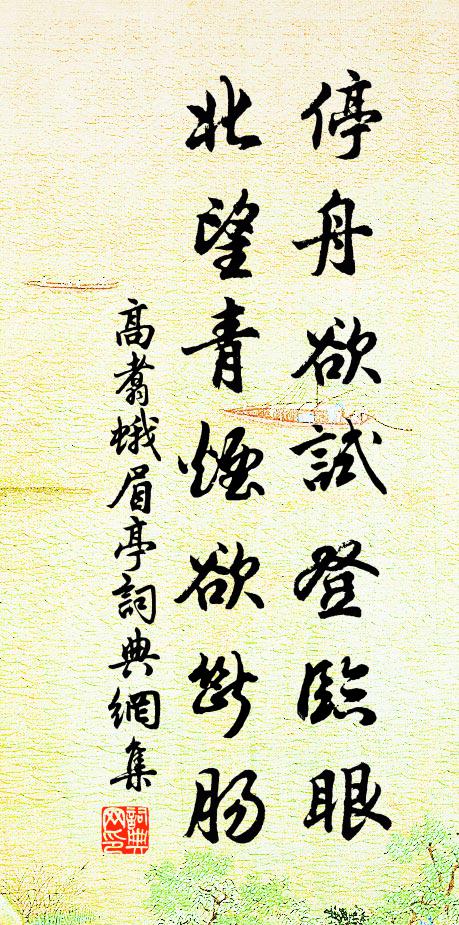 停舟欲試登臨眼
北望青煙欲斷腸
高翥蛾眉亭詞典網集
詞典網印